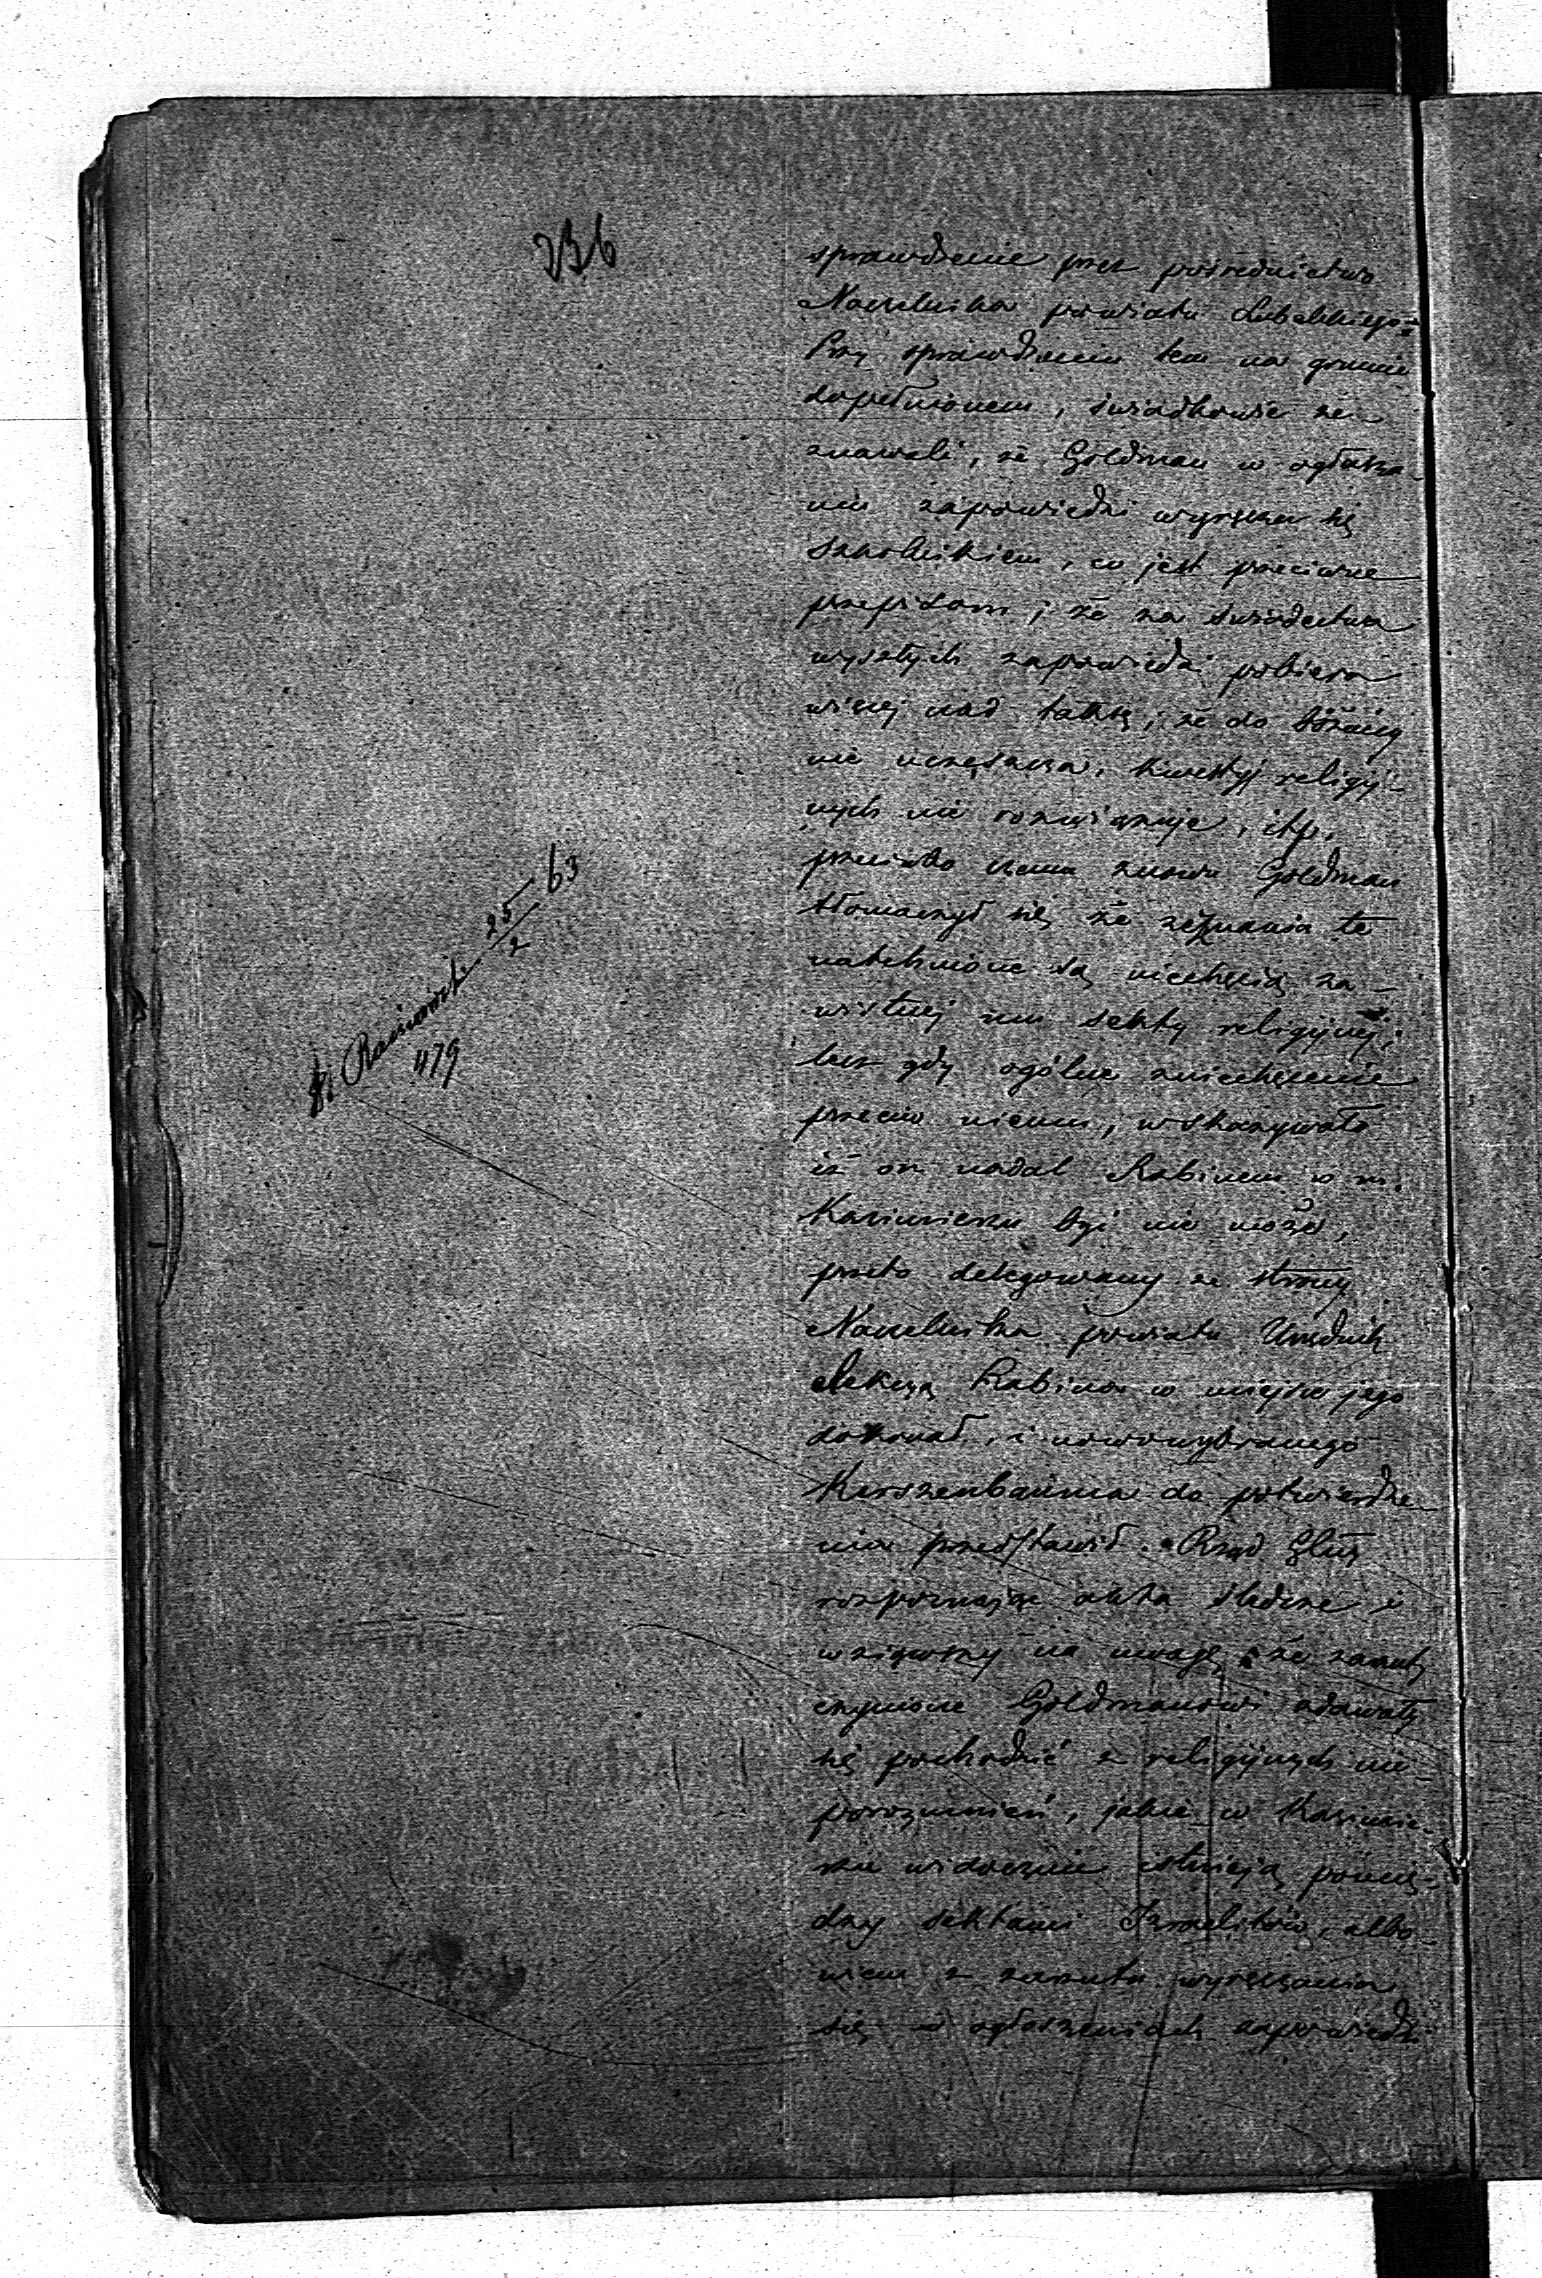 236
sprawdzenie przez pośrednictwo
Naczelnika powiatu Lubelskiego.
Przy sprawdzeniu tem na gruncie
dopełnionem, świadkowie ze-
znawali, że Goldman w ogłasza-
niu zapowiedzi wyręcza się
szkolnikiem, co jest przeciwne
przepisom; że za świadectwa
wyszłych zapowiedzi pobiera
więcej nad taksę; że do bożnicy
nie uczęszcza, kwestyj religij-
nych nie rozwiązuje, itp.
przeciwko czemu znowu Goldman
tłomaczył się, że zeznania te
natchnione są niechęcią za-
wistnej mu sekty religijnej;
lecz gdy ogólne zniechęcenie
przeciw niemu, wskazywało
iż on nadal Rabinem w m.
Kazimierzu być nie może,
przeto delegowany ze strony
Naczelnika powiatu Urzędnik
elekcyą Rabina w miejsce jego
dokonał, i nowowybranego
Kerszenbauma do potwierdze-
nia przedstawił. Rząd Gluy
rozpoznając akta śledcze i
wziąwszy na uwagę, że zarzuty
czynione Goldmanowi zdawały
się pochodzić z religijnych nie-
porozumień, jakie w Kazimie-
rzu widocznie istnieją pomię-
dzy sektami Izraelitów, albo-
wiem z zarzutu wyręczania
się w ogłoszeniach zapowiedzi
25/2 63
479